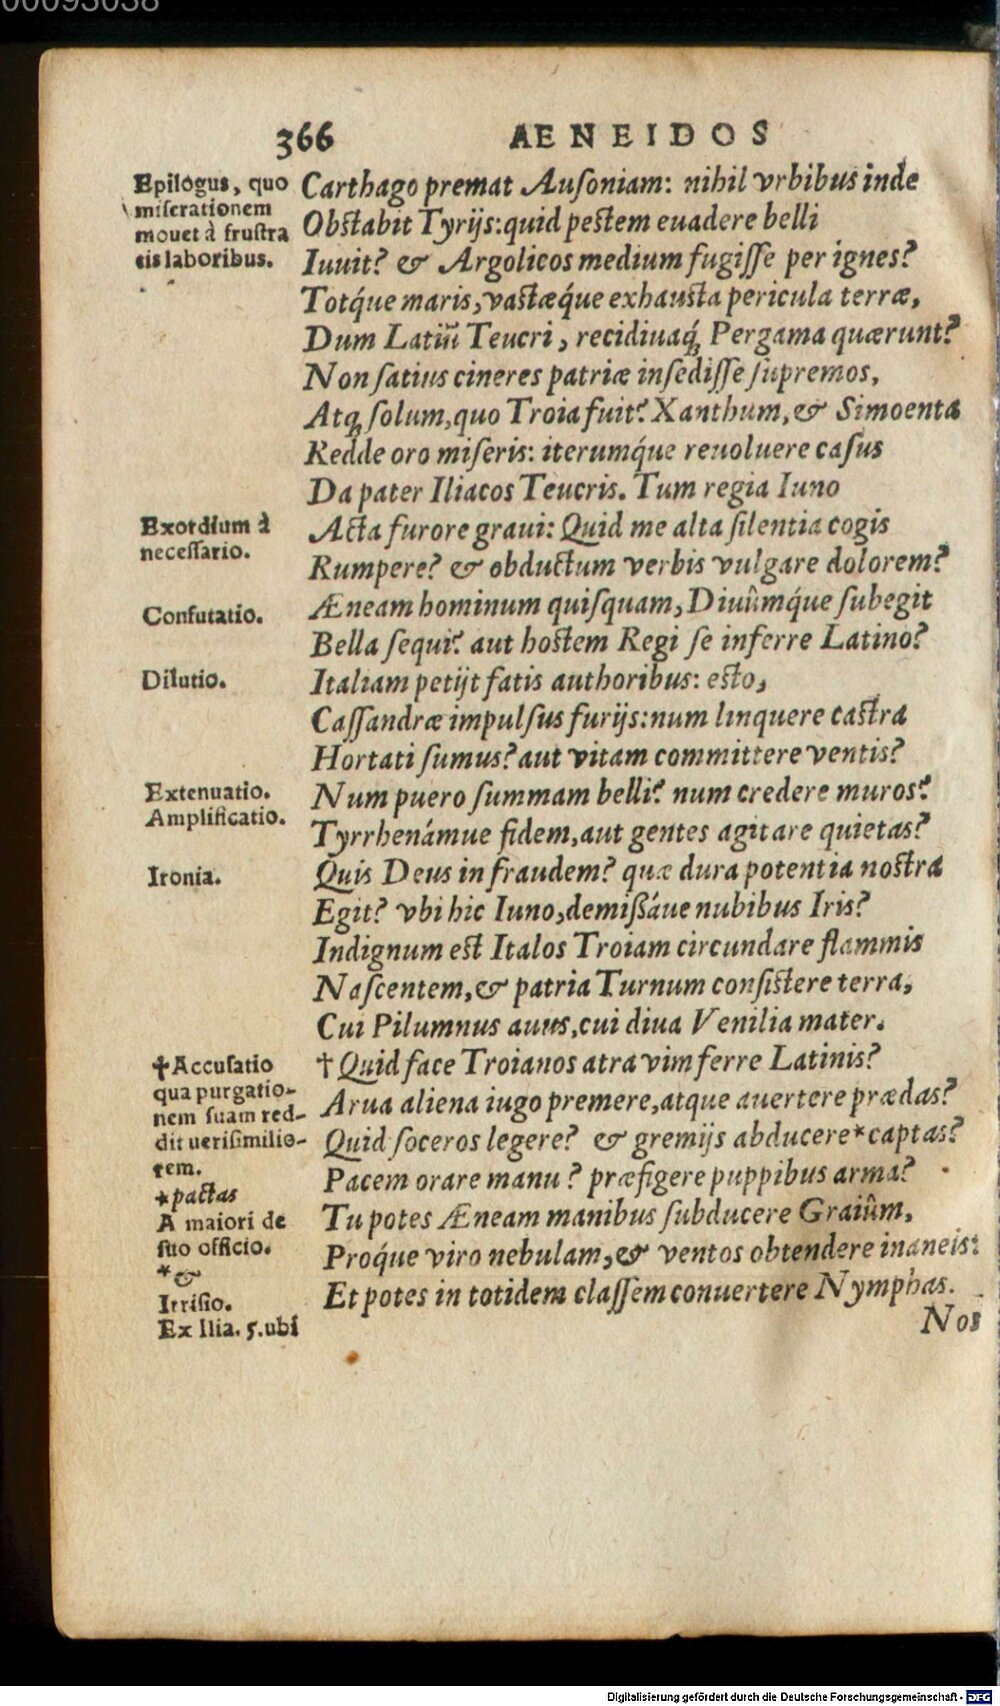 00093038
366
AENEIDOS
Epilogus, quo
miserationem
mouet à frustra
tis laboribus.
Carthago premat Ausoniam: nihil vrbibus inde
Obstabit Tyrijs: quid pestem euadere belli
Iuuit? & Argolicos medium fugisse per ignes?
Totq́ue maris, vastæq́ue exhausta pericula terræ,
Dum Latiū Teucri, recidiuaq́; Pergama quærunt?
Non satius cineres patriæ insedisse supremos,
Atq; solum, quo Troia fuit? Xanthum, & Simoenta
Redde oro miseris: iterumq́ue reuoluere casus
Da pater Iliacos Teucris. Tum regia Iuno
Exordium à
necessario.
Acta furore graui: Quid me alta silentia cogis
Rumpere? & obductum verbis vulgare dolorem?
Confutatio.
Æneam hominum quisquam, Diuûmq́ue subegit
Bella sequi? aut hostem Regi se inferre Latino?
Dilutio.
Italiam petijt fatis authoribus: esto,
Cassandræ impulsus furijs: num linquere castra
Hortati sumus? aut vitam committere ventis?
Extenuatio.
Amplificatio.
Num puero summam belli? num credere muros?
Tyrrhenámue fidem, aut gentes agitare quietas?
Ironia.
Quis Deus in fraudem? quæ dura potentia nostra
Egit? vbi hic Iuno, demißáue nubibus Iris?
Indignum est Italos Troiam circundare flammis
Nascentem, & patria Turnum consistere terra,
Cui Pilumnus auus, cui diua Venilia mater.
✝Accusatio
qua purgatio-
nem suam red-
dit uerisimilio-
rem.
*pactas
A maiori de
suo officio.
*&
Irrisio.
Ex Ilia. 5. ubi
† Quid face Troianos atra vim ferre Latinis?
Arua aliena iugo premere, atque auertere prædas?
Quid soceros legere? & gremijs abducere*captas?
Pacem orare manu? præfigere puppibus arma?
Tu potes Æneam manibus subducere Graiûm,
Proq́ue viro nebulam, & ventos obtendere inaneis:
Et potes in totidem classem conuertere Nymphas.
Nos
Digitalisierung gefördert durch die Deutsche Forschungsgemeinschaft - DFG